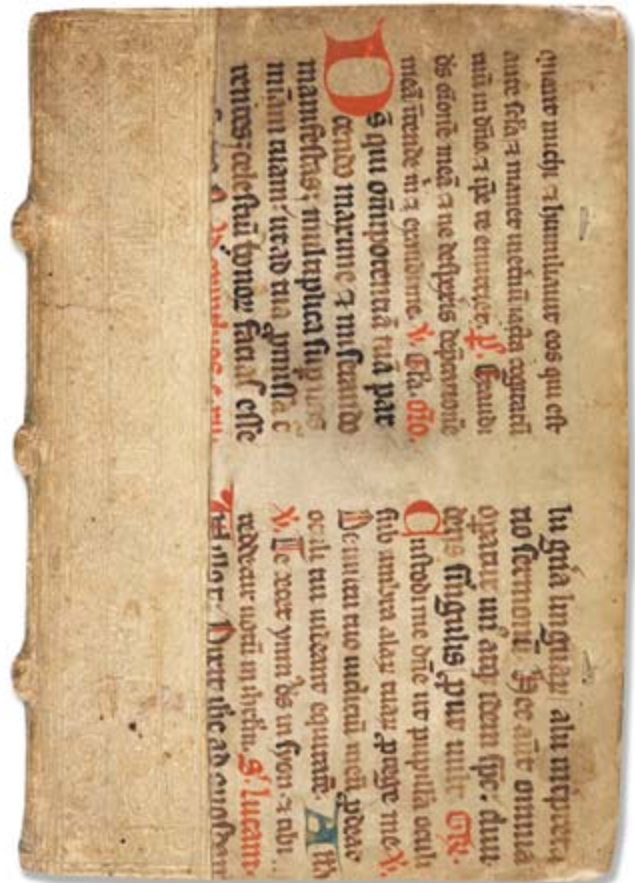 quauit michi ⁊ humiliauit eos qui est
ante sc̄la ⁊ manet inet̄nū iacta cogitatū
tuū in dn̄o ⁊ ip̄e te enutriet. p̄. Exaudi
ds or̄onē meā ⁊ ne despex̄is dep̄cationē
meā intende m̄ ⁊ exaudi me. V. Gl̄a. or̄o.
Ds̄ qui om̄ipotentiā tuā par
cendo maxime ⁊ miserando
manifestas; multiplica sup nos
miām tuam; ut ad tua p̄missa c
rentes; celestiū bonoꝝ facias esse
lii gr̄a linguaꝝ alii int̄p̄ta
tio sermonū. Hec aūt omnia
opatur un᷒ atq; idem sp̄c; diui
dens singulis put uult. GR.
Custodi me dn̄e ut pupillā oculi
sub umbra alaꝝ tuaꝝ ꝓtege me. V.
De uultu tuo iudiciū meū ꝓdeat
oculi tui uideant equitatē. All̄a
V. Te decet ymn᷒ ds̄ in syon ⁊ tibi
reddetur uotū in ihrlm̄. S. lucam.
illo t. Dixit ihc̄ ad quosdam